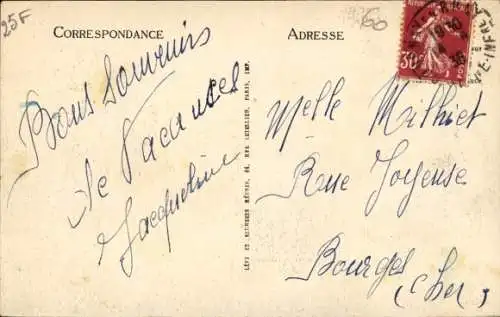 25F
CORRESPONDANCE
Bons souvenirs
de Vacances
Jacqueline
LÉVY ET NEURDEIN RÉUNIS, 44, RUE LETELLIER, PARIS, IMP.
ADRESSE
160
30
Melle Mathiet
Rue Joyeuse
Bourges
(Cher)